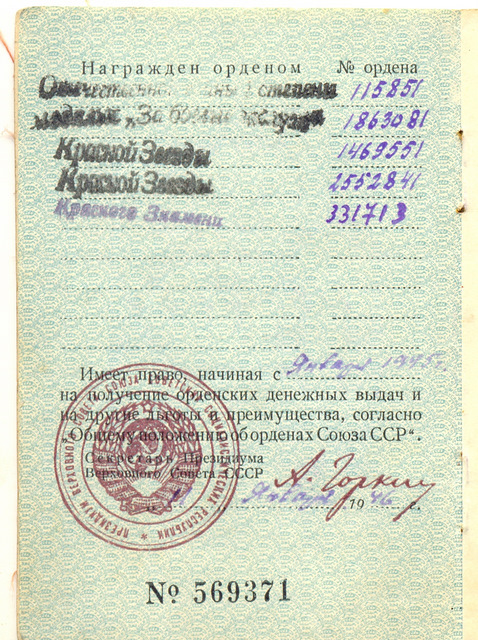 Награжден орденом № ордена
Отечественной войны степени 115851
медалью „За боевые заслуги 1863081
Красной Звезды 1469551
Красной Звезды 2552841
Красного Знамени 331713
Имеет право, начиная с января 1945 г.
на получение орденских денежных выдач и
на другие льготы и преимущества, согласно
„Общему положению об орденах Союза ССР“.
Секретарь Президиума
Верховного Совета СССР А. Горкин
января 1946 г.
№ 569371
ПРЕЗИДИУМ ВЕРХОВНОГО СОВЕТА СОЮЗА СОВЕТСКИХ СОЦИАЛИСТИЧЕСКИХ РЕСПУБЛИК